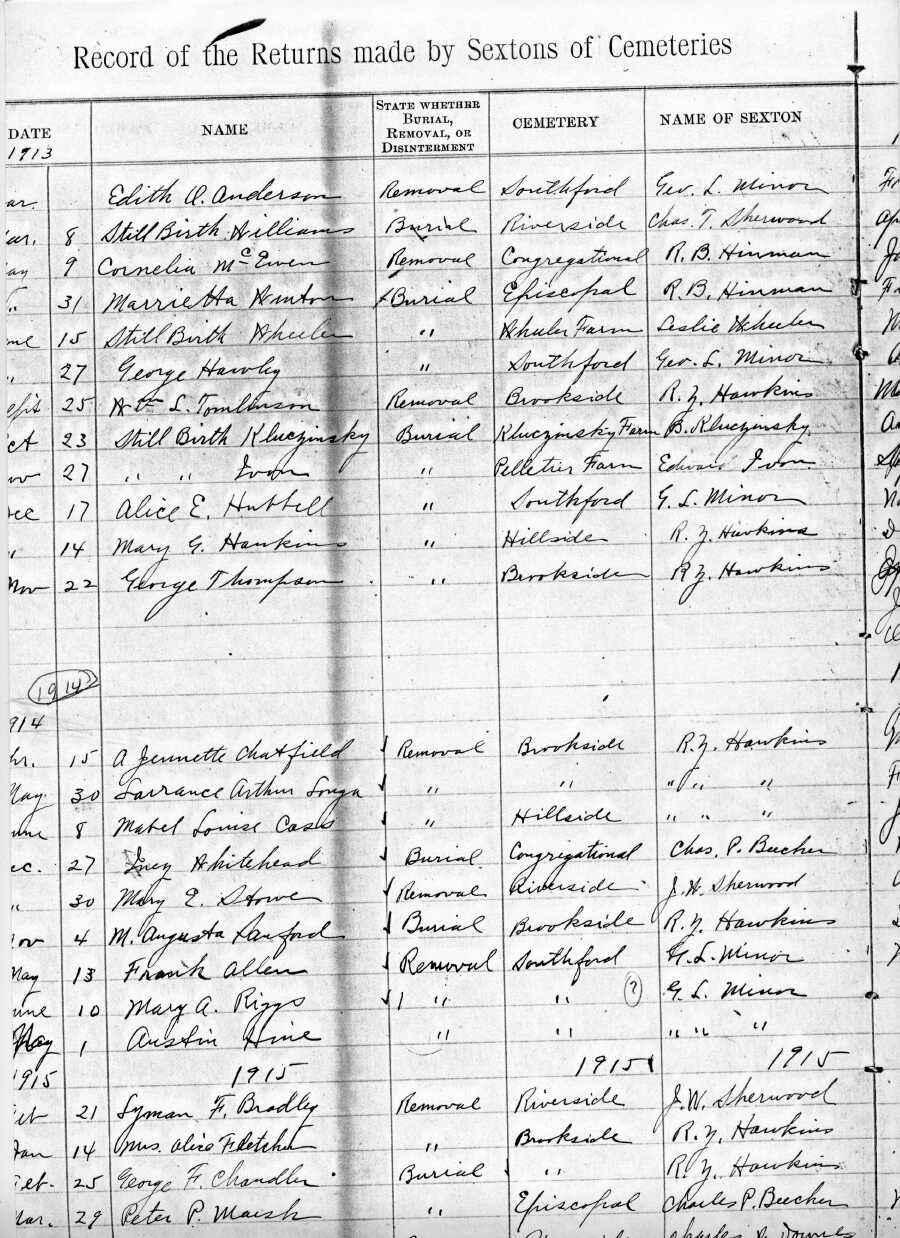 Record of the Returns made by Sextons of Cemeteries
DATE NAME STATE WHETHER BURIAL, REMOVAL, OR DISINTERMENT CEMETERY NAME OF SEXTON
1913
ar. Edith A. Anderson Removal Southford Geo. L. Minor
ar. 8 Still Birth Williams Burial Riverside Chas. T. Sherwood
ay 9 Cornelia McEwen Removal Congregational R. B. Hinman
" 31 Marrietta Hinton Burial Episcopal R. B. Hinman
ne 15 Still Birth Wheeler " Wheeler Farm Leslie Wheeler
" 27 George Hawley " Southford Geo. L. Minor
ept 25 Wm L. Tomlinson Removal Brookside R. Y. Hawkins
ct 23 Still Birth Kluczinsky Burial Kluczinsky Farm B. Kluczinsky
ov 27 " " Ivon " Pelletier Farm Edward Ivon
ec 17 Alice E. Hubbell " Southford G. L. Minor
" 14 Mary G. Hawkins " Hillside R. Y. Hawkins
Nov 22 George Thompson " Brookside R. Y. Hawkins
1914
914
15 A Jennette Chatfield Removal Brookside R. Y. Hawkins
May 30 Larrance Arthur Longa " " " " "
une 8 Mabel Louise Cass " Hillside " " "
ec. 27 Inez Whitehead Burial Congregational Chas. P. Beecher
" 30 Mary E. Stowe Removal Riverside J. W. Sherwood
Nov 4 M. Augusta Sanford Burial Brookside R. Y. Hawkins
May 13 Frank Allen Removal Southford G. L. Minor
une 10 Mary A. Riggs " " (?) G. L. Minor
1 Austin Hine " " " " "
1915 1915 1915 1915
eb 21 Lyman F. Bradley Removal Riverside J. W. Sherwood
Jan 14 Mrs. Alice Fletcher " Brookside R. Y. Hawkins
Feb. 25 George F. Chandler Burial " R. Y. Hawkins
Mar. 29 Peter P. Marsh " Episcopal Charles P. Beecher